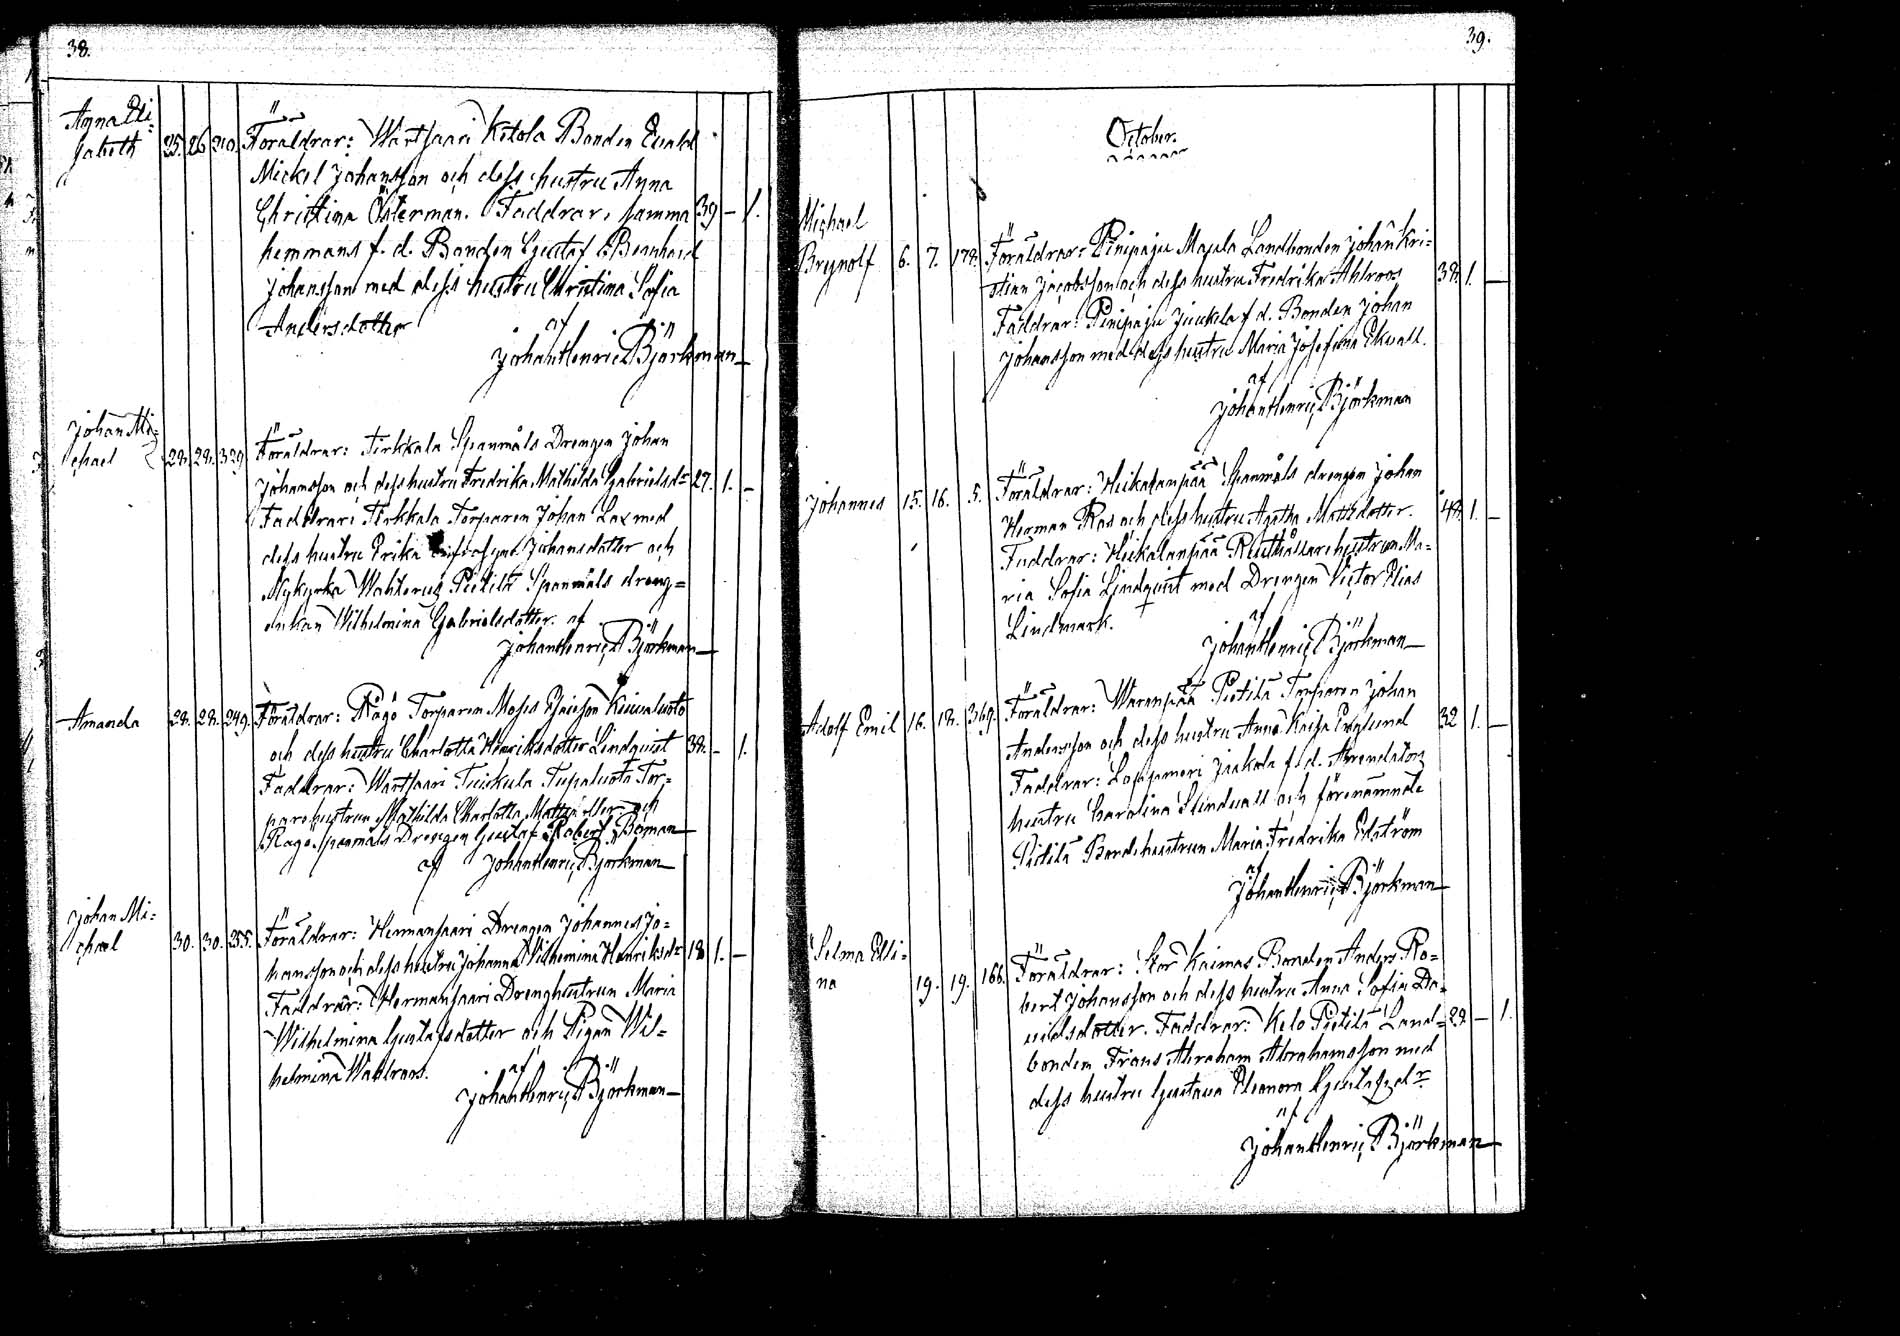 38.
Anna Eli=
sabeth 25. 26 210. Föräldrar: Wartsaari Ketola Bonden Evald
Mickel Johansson och dess hustru Anna
Christina Österman. Faddrar, samma 39 – 1.
hemmans f. d. Bonden Gustaf Bernhard
Johansson med dess hustru Christina Sofia
Andersdotter
af
Johan Henric Björkman
Johan Mi=
chael 28. 28. 329 Föräldrar: Tirkkala Spanmåls Drengen Johan
Johansson och dess hustru Fredrika Mathilda Gabrielsdr 27. 1. –
Faddrar: Tirkkala Torparen Johan Lax med
dess hustru Erika Johansdotter och
Nykyrka Pietilä Spanmåls dreng=
enkan Wilhelmina Gabrielsdotter. af
Johan Henric Björkman
Amanda 28. 28. 249. Föräldrar: Rågö Torparen Moses Esaiesson Kiuvaluoto
och dess hustru Charlotta Henriksdotter Lindquist 38. – 1.
Faddrar: Wartsaari Tuiskula Tupaluoto Tor=
parehustrun Mathilda Charlotta Mattsdotter och
Rågö Spanmåls Drengen Gustaf Robert Boman
af Johan Henric Björkman
Johan Mi=
chael 30. 30. 255. Föräldrar: Hermansaari Drengen Johannes Jo=
hansson och dess hustru Johanna Wilhelmina Henriksdr 18 1. –
Faddrar: Hermansaari Drenghustrun Maria
Wilhelmina Gustafsdotter och Pigan Wil=
helmina Wahlroos.
af
Johan Henric Björkman
39.
October.
Michael
Brynolf 6. 7. 178. Föräldrar: Pinipaju Majula Landbonden Johan Kri=
stian Jacobsson och dess hustru Fredrika Ahlroos 38. 1. –
Faddrar: Pinipaju Juukla f d. Bonden Johan
Johansson med dess hustru Maria Josefina Ekvall.
af
Johan Henric Björkman
Johannes 15. 16. 5. Föräldrar: Heikalanpää Spanmåls drengen Johan
Herman Ros och dess hustru Agatha Mattsdotter. 48. 1. –
Faddrar: Heikalanpää Rusthållarehustrun Ma=
ria Sofia Lindquist med Drengen Victor Elias
Lindmark.
af
Johan Henric Björkman
Adolf Emil 16. 18. 369. Föräldrar: Waranpää Pietilä Torparen Johan
Andersson och dess hustru Anna Kaisa Englund 32 1. –
Faddrar: Jaakola f. d. Arrendators
hustru Carolina Stindvall och förenämnde
Pietilä Bondehustrun Maria Fredrika Edström
af
Johan Henric Björkman
Selma Elli=
na 19. 19. 166. Föräldrar: Stor Kaimas Bonden Anders Ro=
bert Johansson och dess hustru Anna Sofia Da=
vidsdotter. Faddrar: Kelo Pietilä Land= 29. – 1.
bonden Frans Abraham Abrahamsson med
dess hustru Gustava Eleonora Gustafsdr
af
Johan Henric Björkman